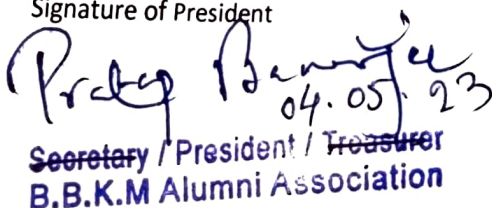 Signature of President
Pratap Banerjee
04.05.23
Secretary / President / Treasurer
B.B.K.M Alumni Association